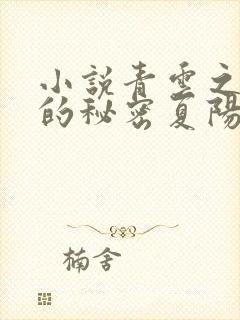 小說青雲之
的秘密夏陽
楠舍